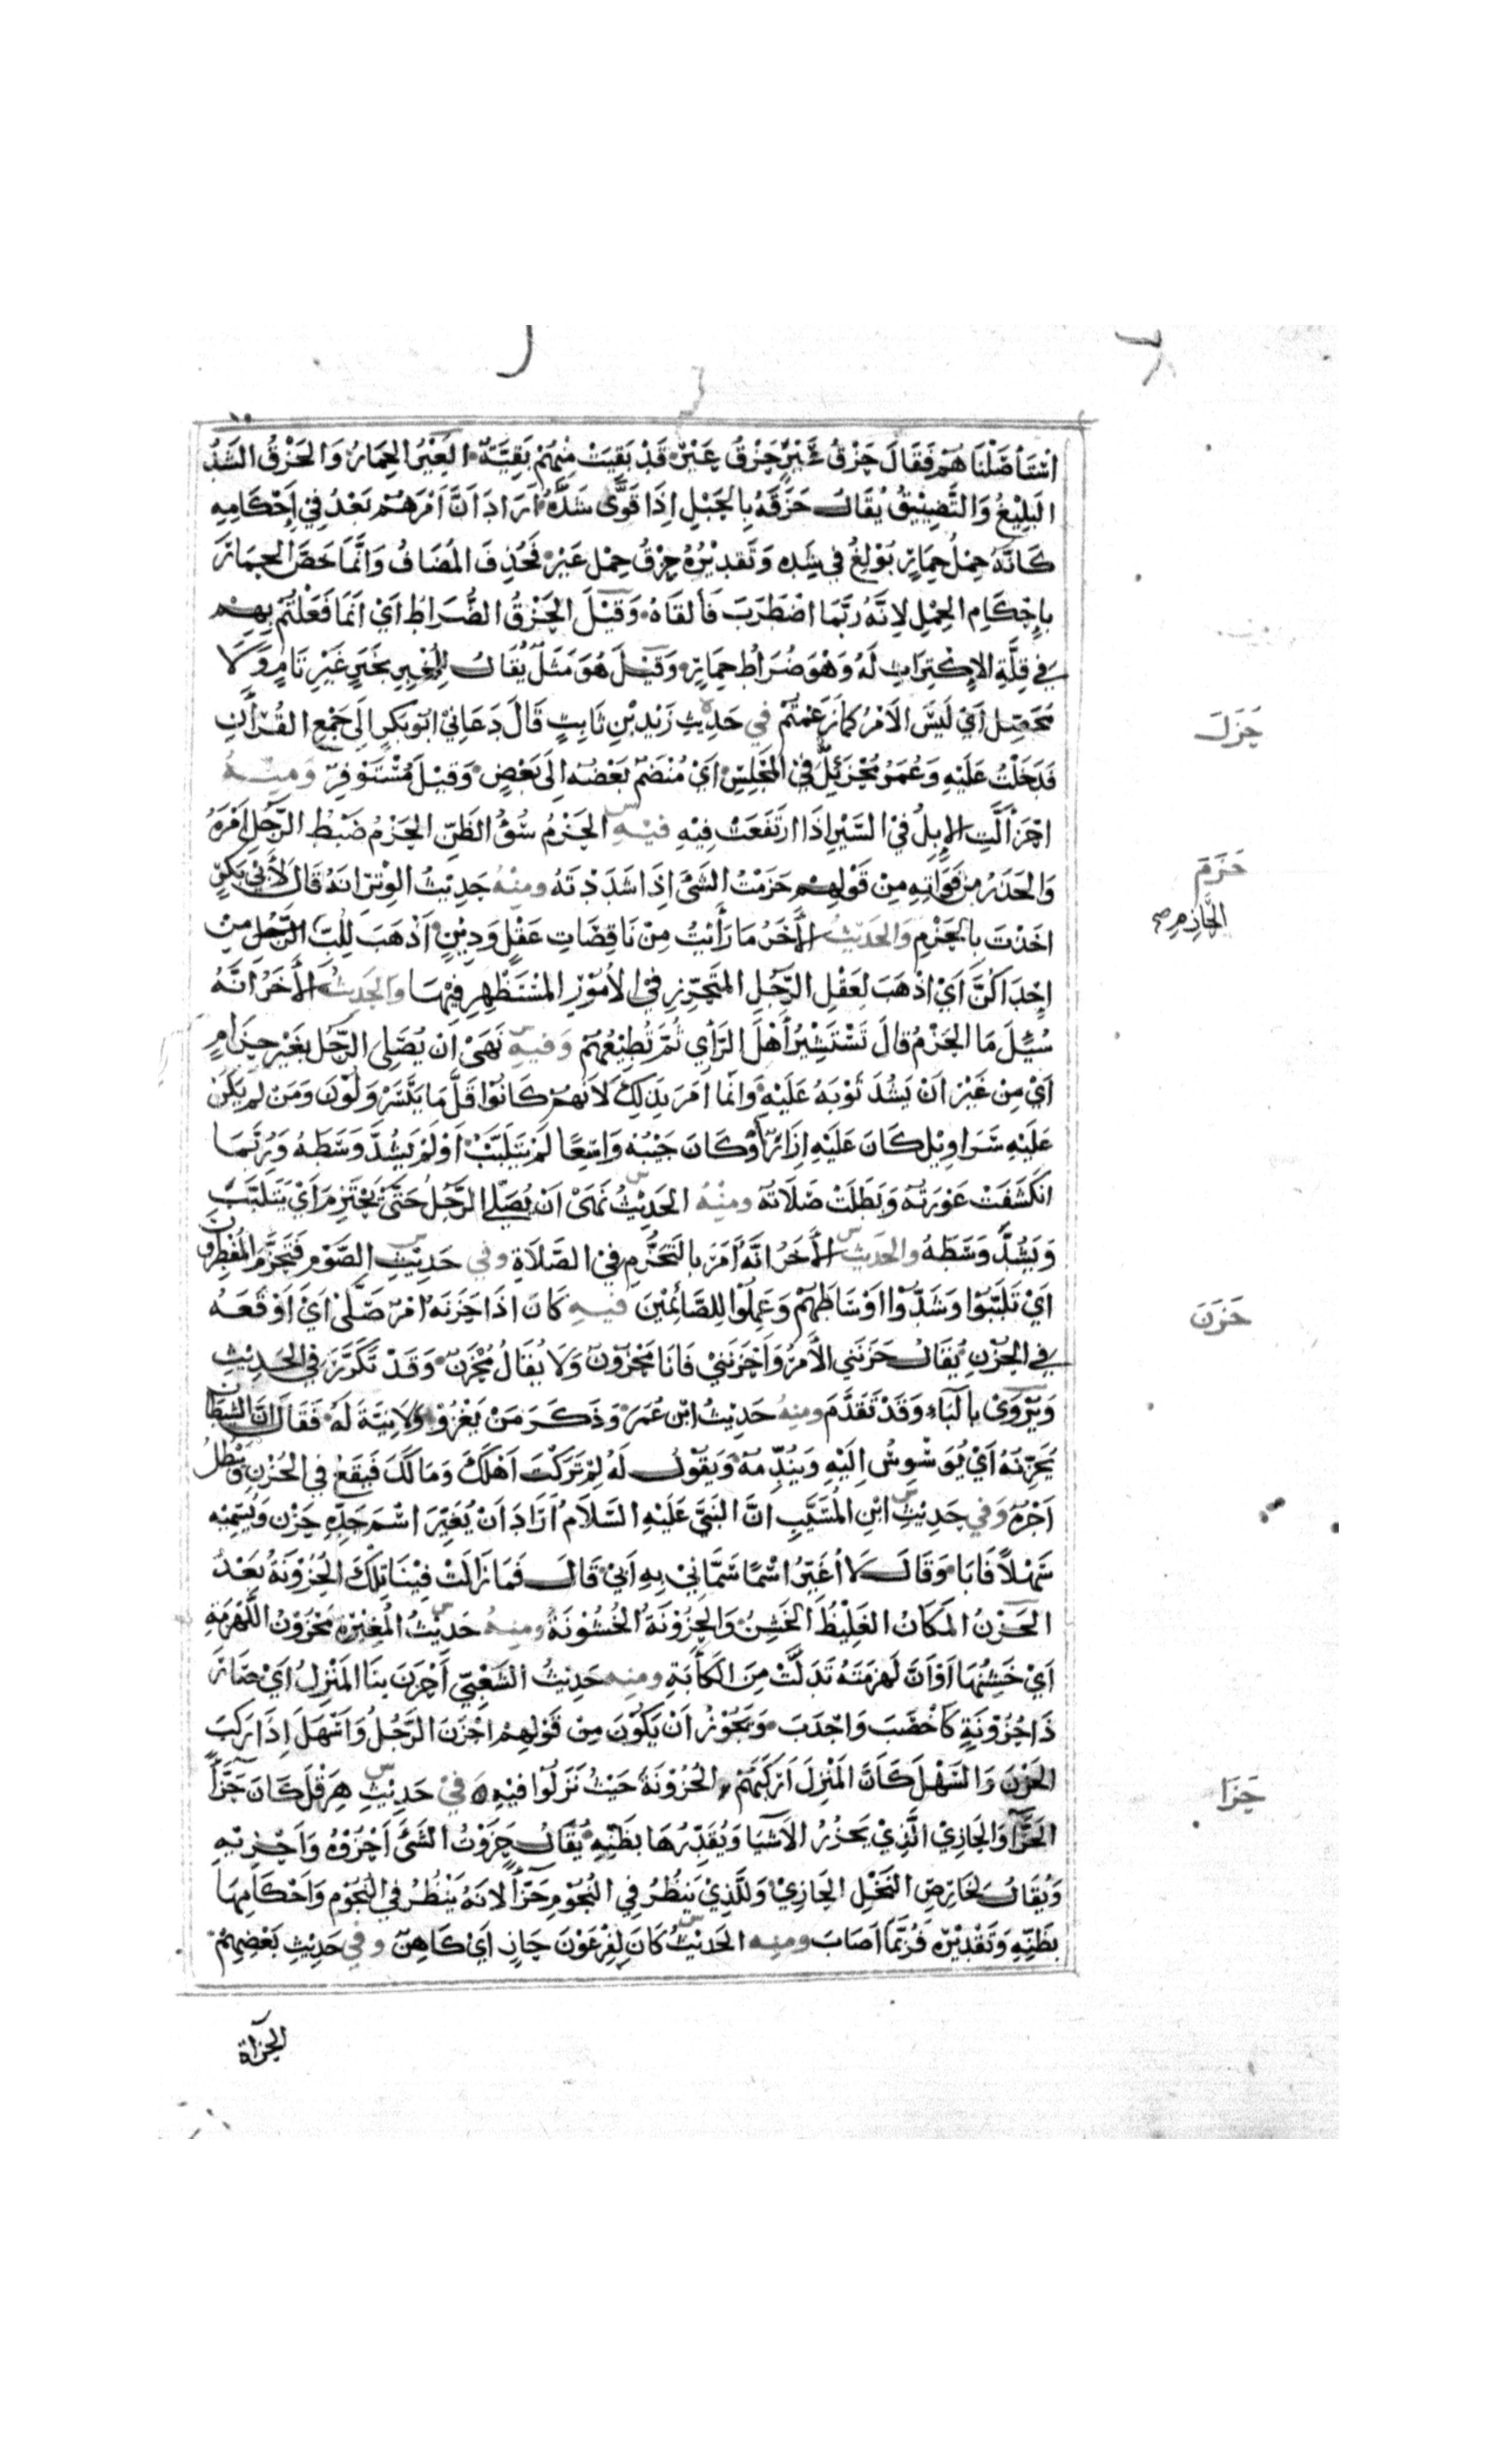 اسْتَأْصَلْنَاهُمْ فَقَالَ حَزْقُ عَيْرٍ حَزْقُ عَيْرٍ قَدْ بَقِيَتْ مِنْهُمْ بَقِيَّةٌ العَيْرُ الحِمَارُ وَالحَزْقُ الشَّدُّ
البَلِيْغُ وَالتَّضْيِيْقُ يُقَالُ حَزَقَهُ بِالحَبْلِ اِذَا قَوَّى شَدَّهُ اَرَادَ اَنَّ اَمْرَهُمْ بَعْدُ فِي اِحْكَامِهِ
كَاَنَّهُ حِمْلُ حِمَارٍ بُوْلِغَ فِي شَدِّهِ وَتَقْدِيْرُهُ حَزْقُ حِمْلِ عَيْرٍ فَحُذِفَ المُضَافُ وَاِنَّمَا خَصَّ الحِمَارَ
بِاِحْكَامِ الحِمْلِ لِاَنَّهُ رُبَّمَا اضْطَرَبَ فَاَلقَاهُ وَقِيْلَ الحَزْقُ الضُّرَاطُ اَيْ اَنَّ مَا فَعَلْتُمْ بِهِمْ
فِي قِلَّةِ الاِكْتِرَاثِ لَهُ وَهُوَ ضُرَاطُ حِمَارٍ وَقِيْلَ هُوَ مَثَلٌ يُقَالُ لِلْمُخْبِرِ بِخَبَرٍ غَيْرِ تَامٍّ وَلَا
مُحَصَّلٍ اَيْ لَيْسَ الاَمْرُ كَمَا زَعَمْتُمْ فِي حَدِيْثِ زَيْدِ بْنِ ثَابِتٍ قَالَ دَعَانِيْ اَبُوْ بَكْرٍ اِلَى جَمْعِ القُرْآنِ
حَزَلَ
فَدَخَلْتُ عَلَيْهِ وَعُمَرُ مُحْزَئِلٌّ فِي المَجْلِسِ اَيْ مُنْضَمٌّ بَعْضُهُ اِلَى بَعْضٍ وَقِيْلَ مُسْتَوْفِزٌ وَمِنْهُ
احْزَأَلَّتِ الاِبِلُ فِي السَّيْرِ اِذَا ارْتَفَعَتْ فِيْهِ فِيْهِ الحَزْمُ سُوْءُ الظَّنِّ الحَزْمُ ضَبْطُ الرَّجُلِ اَمْرَهُ
حَزَمَ
وَالحَذَرُ مِنْ فَوَاتِهِ مِنْ قَوْلِهِمْ حَزَمْتُ الشَّيْءَ اِذَا شَدَدْتَهُ وَمِنْهُ حَدِيْثُ الوِتْرِ انَّهُ قَالَ لِأَبِي بَكْرٍ
اخَذْتَ بِالحَزْمِ وَالحَدِيْثُ الأَخَرُ مَا رَأَيْتُ مِنْ نَاقِصَاتِ عَقْلٍ وَدِيْنٍ اَذْهَبَ لِلُبِّ الرَّجُلِ مِنْ
الحَازِمِ صح
اِحْدَاكُنَّ اَيْ اذْهَبَ لِعَقْلِ الرَّجُلِ المُتَحَرِّزِ فِي الاُمُوْرِ المُسْتَظْهِرِ فِيْهَا وَالحَدِيْثُ الأَخَرُ انَّهُ
سُئِلَ مَا الحَزْمُ قَالَ تَسْتَشِيْرُ أَهْلَ الرَّأْيِ ثُمَّ تُطِيْعُهُمْ وَفِيْهِ نَهَى اَنْ يُصَلِّيَ الرَّجُلُ بِغَيْرِ حِزَامٍ
اَيْ مِنْ غَيْرِ اَنْ يَشُدَّ ثَوْبَهُ عَلَيْهِ وَاِنَّمَا اَمَرَ بِذَلِكَ لِاَنَّهُمْ كَانُوْا قَلَّ مَا يَتَسَرْوَلُوْنَ وَمَنْ لَمْ يَكُنْ
عَلَيْهِ سَرَاوِيْلُ كَانَ عَلَيْهِ اِزَارٌ أَوْ كَانَ جَيْبُهُ وَاسِعًا لَمْ يَتَلَبَّبْ اَوْ لَمْ يَشُدَّ وَسَطَهُ وَرُبَّمَا
انْكَشَفَتْ عَوْرَتُهُ وَبَطَلَتْ صَلَاتُهُ وَمِنْهُ الحَدِيْثُ نَهَى اَنْ يُصَلِّيَ الرَّجُلُ حَتَّى يَحْتَزِمَ اَيْ يَتَلَبَّبَ
وَيَشُدَّ وَسَطَهُ وَالحَدِيْثُ الأَخَرُ انَّهُ أَمَرَ بِالتَّحَزُّمِ فِي الصَّلَاةِ وَفِي حَدِيْثِ الصَّوْمِ فَتَحَزَّمَ المُفْطِرُوْنَ
اَيْ تَلَبَّبُوْا وَشَدُّوْا اَوْسَاطَهُمْ وَعَمِلُوْا لِلصَّائِمِيْنَ فِيْهِ كَانَ اِذَا حَزَنَهُ اَمْرٌ صَلَّى اَيْ اَوْقَعَهُ
حَزَنَ
فِي الحُزْنِ يُقَالُ حَزَنَنِي الأَمْرُ وَأَحْزَنَنِيْ فَانَا مَحْزُوْنٌ وَلَا يُقَالُ مُحْزَنٌ وَقَدْ تَكَرَّرَ فِي الحَدِيْثِ
وَيُرْوَى بِالبَاءِ وَقَدْ تَقَدَّمَ وَمِنْهُ حَدِيْثُ ابْنِ عُمَرَ وَذَكَرَ مَنْ يَغْزُوْ وَلَا نِيَّةَ لَهُ فَقَالَ اِنَّ الشَّيْطَانَ
يُحَزِّنُهُ اَيْ يُوَسْوِسُ اِلَيْهِ وَيُنَدِّمُهُ وَيَقُوْلُ لَهُ لِمَ تَرَكْتَ اَهْلَكَ وَمَالَكَ فَيَقَعُ فِي الحُزْنِ وَيَبْطُلُ
اَجْرُهُ وَفِي حَدِيْثِ ابْنِ المُسَيَّبِ انَّ النَّبِيَّ عَلَيْهِ السَّلَامُ أَرَادَ اَنْ يُغَيِّرَ اسْمَ جَدِّهِ حَزْنٍ وَيُسَمِّيَهِ
سَهْلاً فَابَا وَقَالَ لَا اُغَيِّرُ اسْمًا سَمَّانِيْ بِهِ اَبِيْ قَالَ فَمَا زَالَتْ فِيْنَا تِلْكَ الحُزُوْنَةُ بَعْدُ
الحَزْنُ المَكَانُ الغَلِيْظُ الخَشِنُ وَالحُزُوْنَةُ الخُشُوْنَةُ وَمِنْهُ حَدِيْثُ المُغِيْرَةِ مَحْزُوْنُ اللَّهْزِمَةِ
اَيْ خَشِنُهَا اَوْ اَنَّ لِهْزِمَتَهُ تَدَلَّتْ مِنَ الكَآبَةِ وَمِنْهُ حَدِيْثُ الشَّعْبِيِّ أَحْزَنَ بِنَا المَنْزِلُ اَيْ صَارَ
ذَا حُزُوْنَةٍ كَأَخْصَبَ وَاَجْدَبَ وَيَجُوْزُ اَنْ يَكُوْنَ مِنْ قَوْلِهِمْ اَحْزَنَ الرَّجُلُ وَاَسْهَلَ اِذَا رَكِبَ
الحَزْنَ وَالسَّهْلَ كَانَّ المَنْزِلَ اَرْكَبَهُمْ الحُزُوْنَةَ حَيْثُ نَزَلُوْا فِيْهِ ه فِيْ حَدِيْثِ هِرَقْلَ كَانَ حَزَّأً
حَزَا
الحَزَّا وَالحَازِي الَّذِيْ يَحْزُرُ الاَشْيَا وَيُقَدِّرُهَا بِظَنِّهِ يُقَالُ حَزَوْتُ الشَّيْءَ أَحْزُوْهُ وَاَحْزِيْهِ
وَيُقَالُ لِخَارِصِ النَّخْلِ الحَازِيْ وَلِلَّذِيْ يَنْظُرُ فِي النُّجُوْمِ حَزَّأً لِانَّهُ يَنْظُرُ فِي النُّجُوْمِ وَاَحْكَامِهَا
بِظَنِّهِ وَتَقْدِيْرِهِ فَرُبَّمَا اَصَابَ وَمِنْهُ الحَدِيْثُ كَانَ لِفِرْعَوْنَ حَازٍ اَيْ كَاهِنٌ وَفِي حَدِيْثِ بَعْضِهِمْ
الحَزَآة